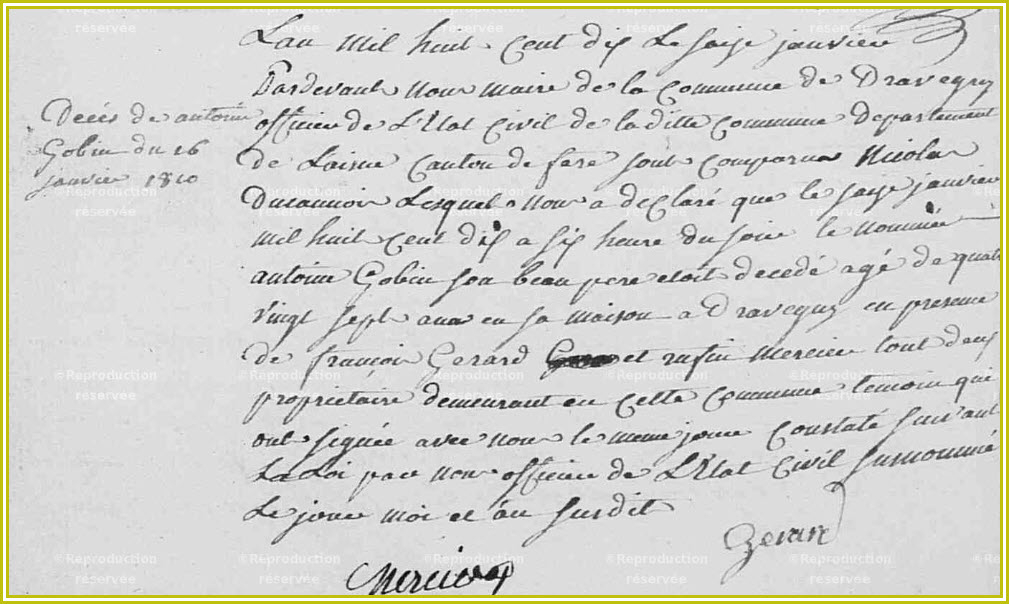 Décès de antoine
Gobin du 16
janvier 1810
L'an mil huit Cent dix Le saise janvier
Pardevant Nous maire de la Commune de Dravegny
officier de L'Etat Civil de laditte Commune departement
de Laisne Canton de fere sont Comparus Nicolas
Lesquel Nous a declaré que le saise janvier
mil huit Cent dix a six heure du soir le Nommée
antoine Gobin son beau pere etoit decedé agé de quatre
vingt sept ans en sa maison a Dravegny en presence
de françois Gerard et rufin Mercier tout deux
proprietaire demeurant en Cette Commune temoin qui
ont signée avec nous le meme jour Constaté suivant
La Loi par Nous officier de L'Etat Civil surnommé
Le jour moi et an susdit
Gerard
Mercier
©Reproduction
réservée